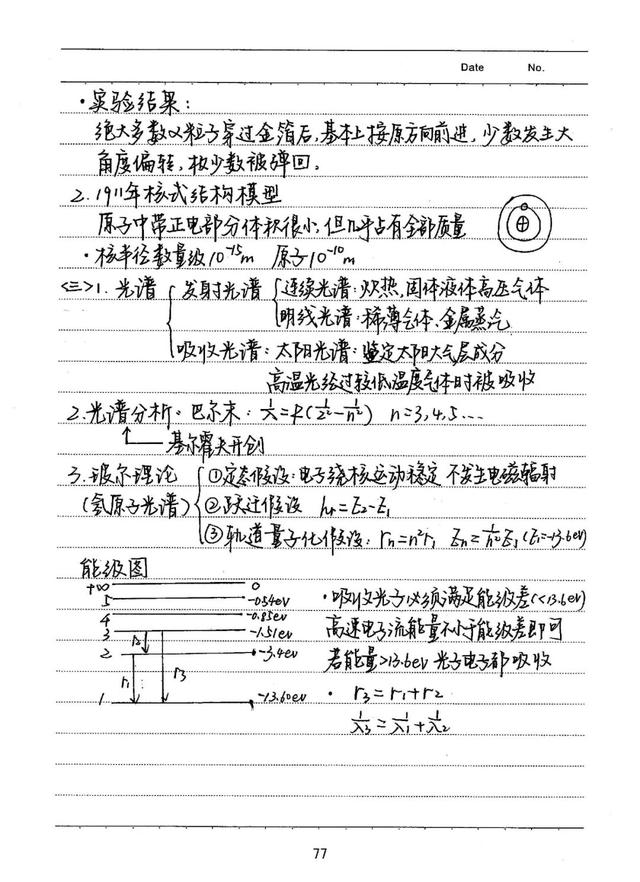 Date No.
·实验结果:
绝大多数α粒子穿过金箔后,基本上按原方向前进,少数发生大
角度偏转,极少数被弹回。
2.1911年核式结构模型
原子中带正电部分体积很小,但几乎占有全部质量
·核半径数量级10⁻¹⁵m 原子10⁻¹⁰m
<三>1.光谱 发射光谱 连续光谱:炽热,固体液体高压气体
明线光谱:稀薄气体、金属蒸气
吸收光谱:太阳光谱:鉴定太阳大气层成分
高温光经过较低温度气体时被吸收
2.光谱分析·巴尔末:1/λ=R(1/2²-1/n²) n=3,4,5...
基尔霍夫开创
3.玻尔理论 ①定态假设:电子绕核运动稳定 不发生电磁辐射
(氢原子光谱) ②跃迁假设 hν=E₂-E₁
③轨道量子化假设: rn=n²r₁ En=1/n²E₁(E₁=-13.6eV)
能级图
+∞ 0
5 -0.54eV ·吸收光子必须满足能级差(<13.6eV)
4 -0.85eV
3 -1.51eV 高速电子流能量不小于能级差即可
2 r₂ -3.4eV 若能量>13.6eV 光子电子都吸收
r₁ r₃
1 -13.60eV · r₃=r₁+r₂
1/λ₃=1/λ₁+1/λ₂
77